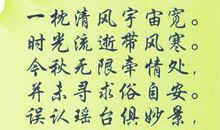 一枕清风宇宙宽。
时光流逝带风寒。
今秋无限牵情处,
并未寻求俗自安。
误认瑶台俱妙景,